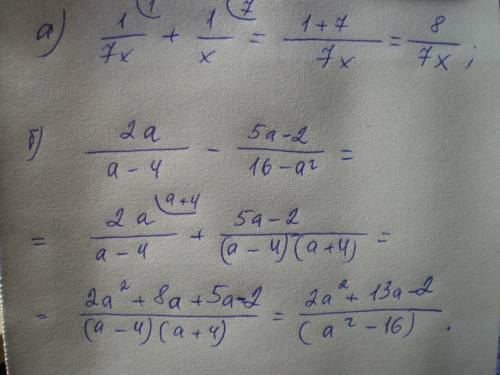 а) 1/7x (1 + 1/x (7 = (1+7)/7x = 8/7x ;
б) 2a/(a-4) - (5a-2)/(16-a²) =
= 2a/(a-4) (a+4 + (5a-2)/((a-4)(a+4)) =
= (2a²+8a+5a-2)/((a-4)(a+4)) = (2a²+13a-2)/(a²-16) .